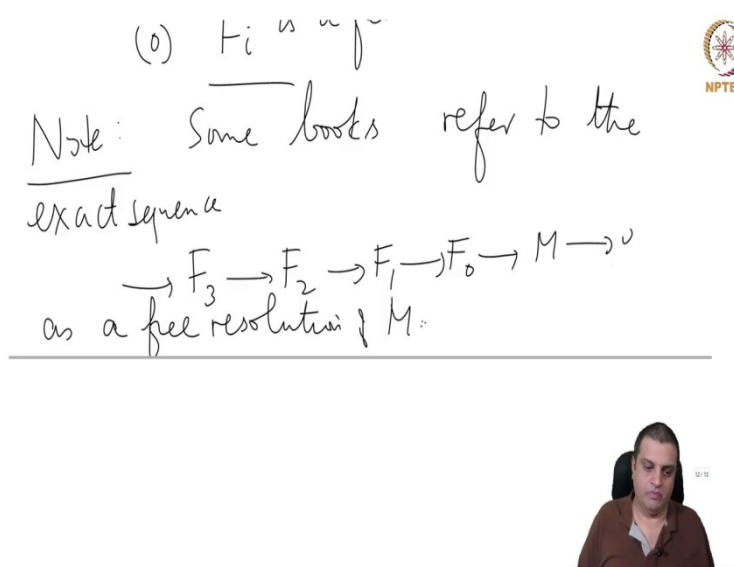 (0) Fi is a
Note: Some books refer to the
exact sequence
→ F₃ → F₂ → F₁ → F₀ → M → 0
as a free resolution of M.
NPTE
12/12